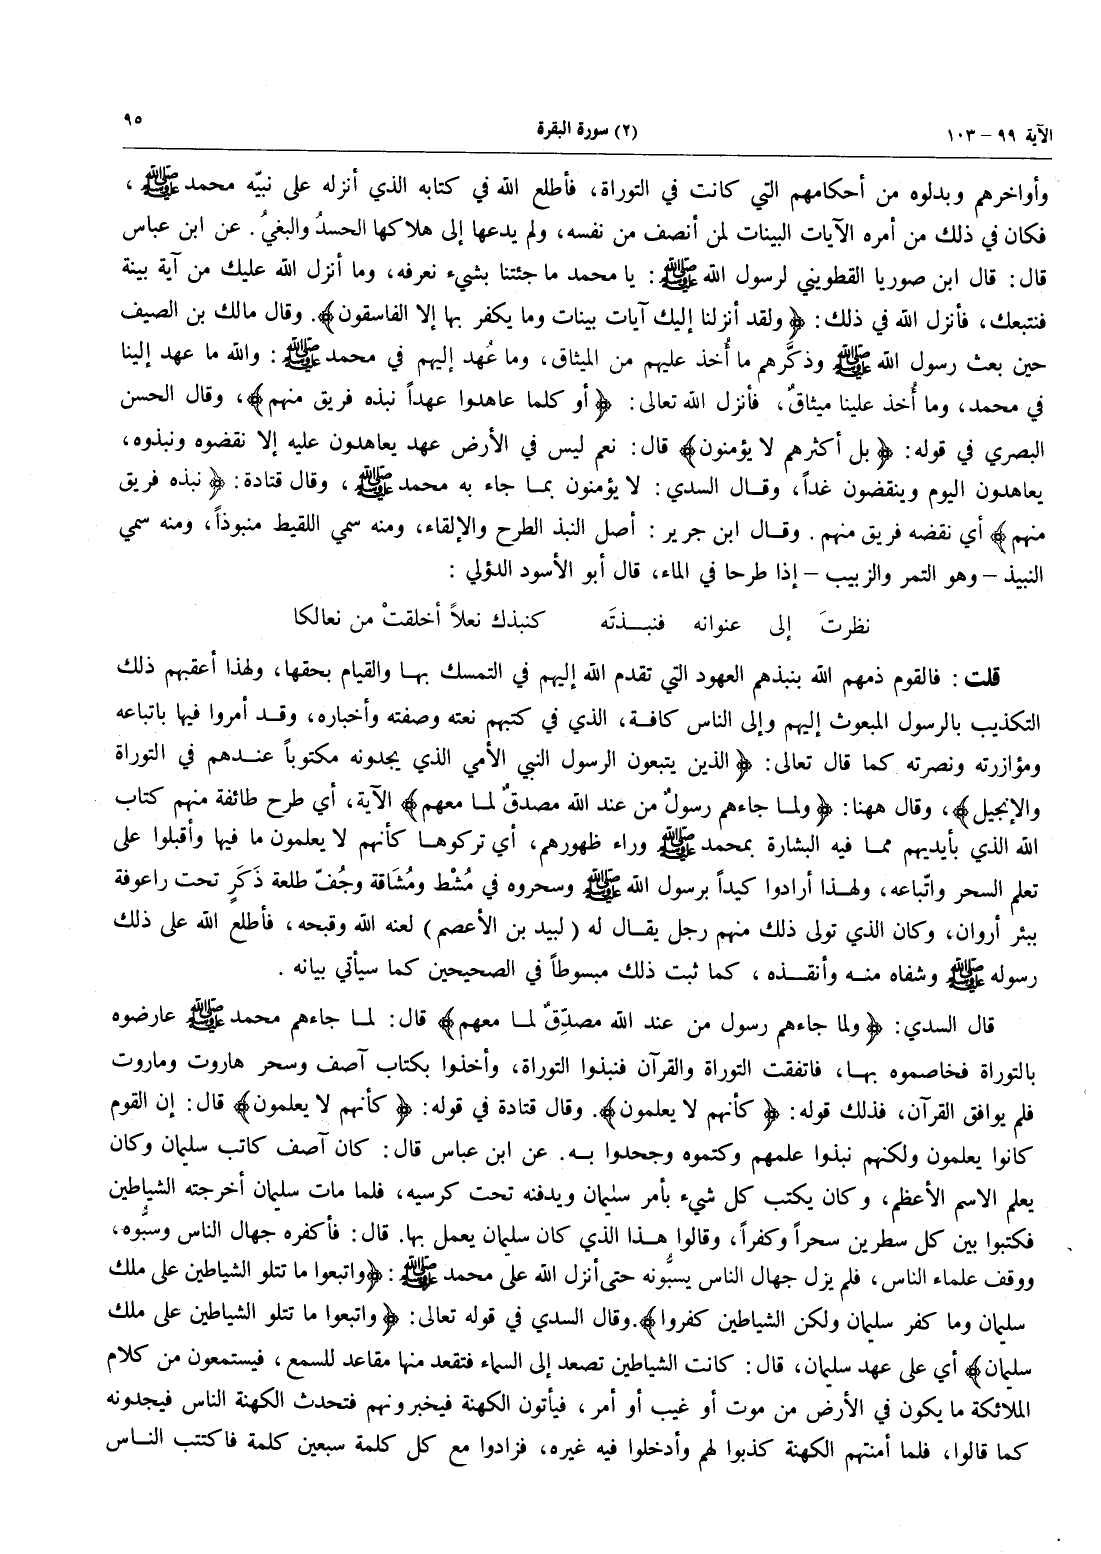 الآية ٩٩ - ١٠٣
(٢) سورة البقرة
٩٥
وأواخرهم وبدلوه من أحكامهم التي كانت في التوراة، فأطلع الله في كتابه الذي أنزله على نبيّه محمد ﷺ ،
فكان في ذلك من أمره الآيات البينات لمن أنصف من نفسه، ولم يدعها إلى هلاكها الحسدُ والبغيُ . عن ابن عباس
قال: قال ابن صوريا القطويني لرسول الله ﷺ : يا محمد ما جئتنا بشيء نعرفه، وما أنزل الله عليك من آية بينة
فنتبعك، فأنزل الله في ذلك: ﴿ولقد أنزلنا إليك آيات بينات وما يكفر بها إلا الفاسقون﴾. وقال مالك بن الصيف
حين بعث رسول الله ﷺ وذكَّرهم ما أُخذ عليهم من الميثاق، وما عُهد إليهم في محمد ﷺ : والله ما عهد إلينا
في محمد، وما أُخذ علينا ميثاقٌ، فأنزل الله تعالى: ﴿أو كلما عاهدوا عهداً نبذه فريق منهم﴾، وقال الحسن
البصري في قوله: ﴿بل أكثرهم لا يؤمنون﴾ قال: نعم ليس في الأرض عهد يعاهدون عليه إلا نقضوه ونبذوه،
يعاهدون اليوم وينقضون غداً، وقال السدي: لا يؤمنون بما جاء به محمد ﷺ ، وقال قتادة: ﴿نبذه فريق
منهم﴾ أي نقضه فريق منهم. وقال ابن جرير : أصل النبذ الطرح والإلقاء، ومنه سمي اللقيط منبوذاً، ومنه سمي
النبيذ - وهو التمر والزبيب - إذا طرحا في الماء، قال أبو الأسود الدؤلي :
نظرتَ إلى عنوانه فنبذتَه كنبذك نعلاً أخلقتْ من نعالكا
قلت : فالقوم ذمهم الله بنبذهم العهود التي تقدم الله إليهم في التمسك بها والقيام بحقها، ولهذا أعقبهم ذلك
التكذيب بالرسول المبعوث إليهم وإلى الناس كافة، الذي في كتبهم نعته وصفته وأخباره، وقد أمروا فيها باتباعه
ومؤازرته ونصرته كما قال تعالى: ﴿الذين يتبعون الرسول النبي الأمي الذي يجدونه مكتوباً عندهم في التوراة
والإنجيل﴾، وقال ههنا: ﴿ولما جاءهم رسولٌ من عند الله مصدقٌ لما معهم﴾ الآية، أي طرح طائفة منهم كتاب
الله الذي بأيديهم مما فيه البشارة بمحمد ﷺ وراء ظهورهم، أي تركوها كأنهم لا يعلمون ما فيها وأقبلوا على
تعلم السحر واتّباعه، ولهذا أرادوا كيداً برسول الله ﷺ وسحروه في مُشْط ومُشَاقة وجُفّ طلعة ذَكَرٍ تحت راعوفة
ببئر أروان، وكان الذي تولى ذلك منهم رجل يقال له ( لبيد بن الأعصم ) لعنه الله وقبحه، فأطلع الله على ذلك
رسوله ﷺ وشفاه منه وأنقذه ، كما ثبت ذلك مبسوطاً في الصحيحين كما سيأتي بيانه .
قال السدي: ﴿ولما جاءهم رسول من عند الله مصدِّقٌ لما معهم﴾ قال: لما جاءهم محمد ﷺ عارضوه
بالتوراة فخاصموه بها، فاتفقت التوراة والقرآن فنبذوا التوراة، وأخذوا بكتاب آصف وسحر هاروت وماروت
فلم يوافق القرآن، فذلك قوله: ﴿كأنهم لا يعلمون﴾. وقال قتادة في قوله: ﴿كأنهم لا يعلمون﴾ قال: إن القوم
كانوا يعلمون ولكنهم نبذوا علمهم وكتموه وجحدوا به. عن ابن عباس قال: كان آصف كاتب سليمان وكان
يعلم الاسم الأعظم، وكان يكتب كل شيء بأمر سليمان ويدفنه تحت كرسيه، فلما مات سليمان أخرجته الشياطين
فكتبوا بين كل سطرين سحراً وكفراً، وقالوا هذا الذي كان سليمان يعمل بها. قال: فأكفره جهال الناس وسبُّوه،
ووقف علماء الناس، فلم يزل جهال الناس يسبُّونه حتى أنزل الله على محمد ﷺ : ﴿واتبعوا ما تتلو الشياطين على ملك
سليمان وما كفر سليمان ولكن الشياطين كفروا﴾.وقال السدي في قوله تعالى: ﴿واتبعوا ما تتلو الشياطين على ملك
سليمان﴾ أي على عهد سليمان، قال: كانت الشياطين تصعد إلى السماء فتقعد منها مقاعد للسمع، فيستمعون من كلام
الملائكة ما يكون في الأرض من موت أو غيب أو أمر، فيأتون الكهنة فيخبرونهم فتحدث الكهنة الناس فيجدونه
كما قالوا، فلما أمنتهم الكهنة كذبوا لهم وأدخلوا فيه غيره، فزادوا مع كل كلمة سبعين كلمة فاكتتب الناس